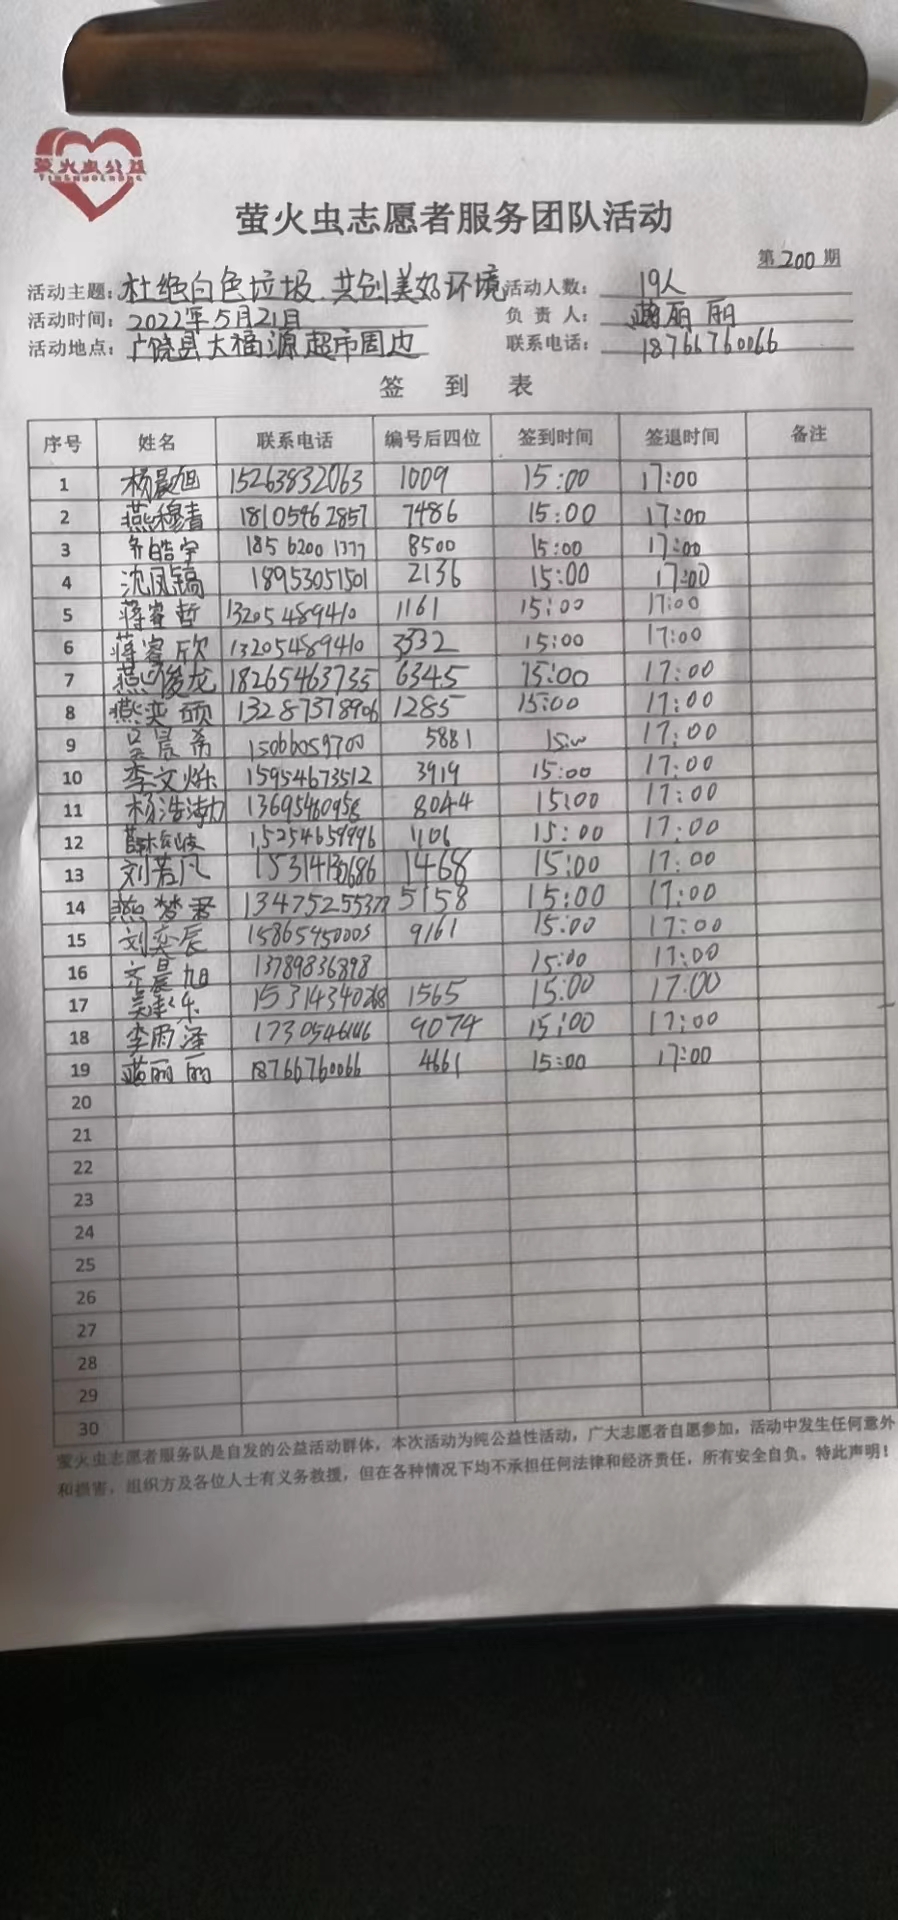 萤火虫公益
萤火虫志愿者服务团队活动
第200期
活动主题：杜绝白色垃圾、共创美好环境 活动人数：19人
活动时间：2022年5月21日 负责人：丽丽
活动地点：广饶县大福源超市周边 联系电话：18766760066
签到表
序号 姓名 联系电话 编号后四位 签到时间 签退时间 备注
1 杨晨旭 15263832063 1009 15:00 17:00
2 燕穆清 18105462857 7486 15:00 17:00
3 皓宇 185 6200 1377 8500 15:00 17:00
4 沈凤镐 18953051501 2136 15:00 17:00
5 蒋睿哲 13205489410 1161 15:00 17:00
6 蒋睿欣 13205489410 3332 15:00 17:00
7 燕俊龙 18265463735 6345 15:00 17:00
8 燕奕硕 13287378906 1285 15:00 17:00
9 晨希 15066059700 5881 15:00 17:00
10 李文烁 15954673512 3919 15:00 17:00
11 杨浩渤 13695460958 8044 15:00 17:00
12 15254659996 1106 15:00 17:00
13 刘若凡 1468 15:00 17:00
14 燕梦君 5158 15:00 17:00
15 刘奕辰 15865450003 9161 15:00 17:00
16 晨旭 13789836898 15:00 17:00
17 15314340268 1565 15:00 17:00
18 李雨泽 9074 15:00 17:00
19 丽丽 18766760066 4661 15:00 17:00
20
21
22
23
24
25
26
27
28
29
30
萤火虫志愿者服务队是自发的公益活动群体，本次活动为纯公益性活动，广大志愿者自愿参加，活动中发生任何意外
和损害，组织方及各位人士有义务救援，但在各种情况下均不承担任何法律和经济责任，所有安全自负。特此声明！